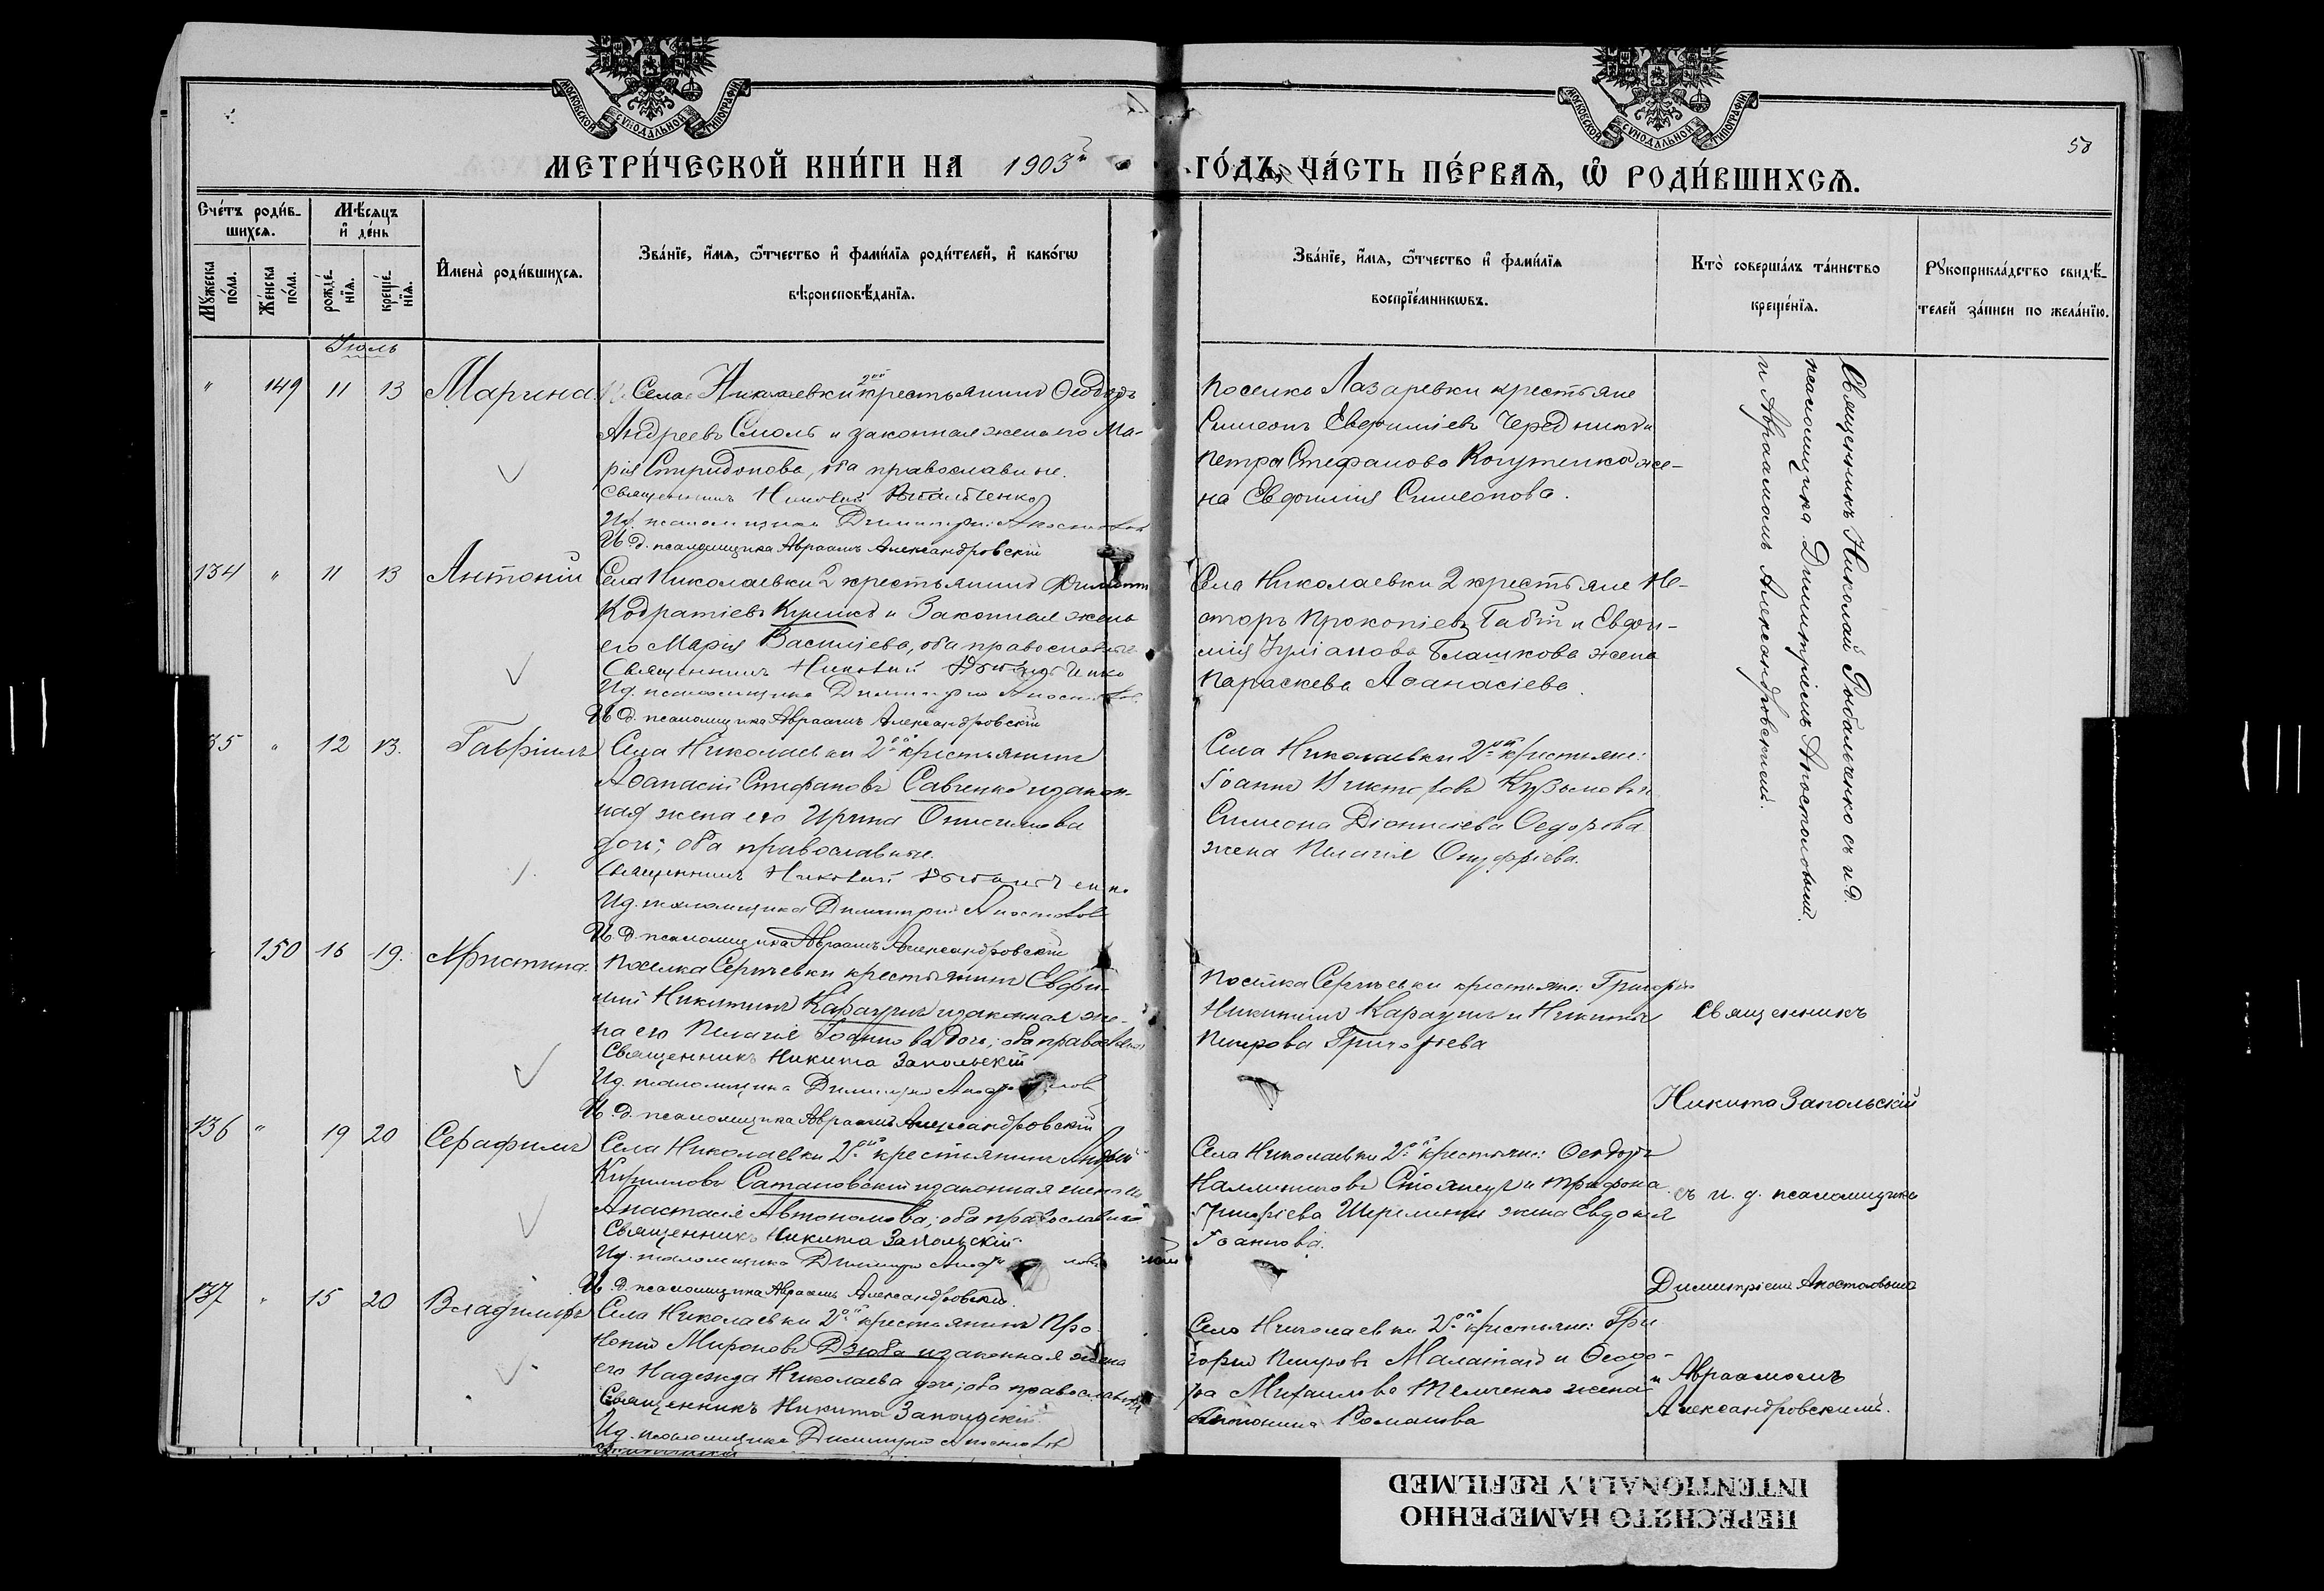 МОСКОВСКОЙ СѴНОДАЛЬНОЙ ТИПОГРАФІИ
МОСКОВСКОЙ СѴНОДАЛЬНОЙ ТИПОГРАФІИ
58
МЕТРИ́ЧЕСКОЙ КНИ́ГИ НА 1903й ГО́ДЪ, ЧА́СТЬ ПЕ́РВАѦ, Ѡ҆ РОДИ́ВШИХСѦ.
Сче́тъ роди́в-
шихсѧ.
Мꙋ́жеска по́ла.
Же́нска по́ла.
Мѣ́сѧцъ
и҆ де́нь
рожде́-
нїѧ.
креще́-
нїѧ.
И҆мена̀ роди́вшихсѧ.
Зва́нїе, и҆́мѧ, ѻ҆́тчество и҆ фами́лїѧ роди́телей, и҆ како́гѡ
вѣроисповѣ́данїѧ.
Зва́нїе, и҆́мѧ, ѻ҆́тчество и҆ фами́лїѧ
воспрїе́мникѡвъ.
Кто̀ соверша́лъ та́инство
креще́нїѧ.
Рꙋкоприкла́дство свидѣ́-
телей за́писи по жела́нїю.
Іюль
" 149 11 13 Марина
Села Николаевки 2ой крестьянинъ Ѳеодоръ
Андреевъ Смоль и законная жена его Ма-
рія Спиридонова, оба православные.
Священникъ Николай Рыбальченко
И.д. псаломщика Димитрій Апостоловъ
И.д. псаломщика Авраамъ Александровскій
Поселка Лазаревки крестьяне
Симеонъ Евфиміевъ Чередникъ и
Петра Стефанова Когутенко же-
на Евфимія Симеонова.
Священникъ Николай Рыбальченко съ и.д.
псаломщика Димитріемъ Апостоловымъ
и Авраамомъ Александровскимъ.
134 " 11 13 Антоній
Села Николаевки 2 крестьянинъ
Кодратіевъ Куликъ и законная жена
его Марія Василіева, оба православные
Священникъ Николай Рыбальченко
И.д. псаломщика Димитрій Апостоловъ
И.д. псаломщика Авраамъ Александровскій
Села Николаевки 2 крестьяне Не-
сторъ Прокопіевъ Габій и Евфи-
мія Іуліанова Блашкова жена
Параскева Аѳанасіева.
35 " 12 13. Гавріилъ
Села Николаевки 2ой крестьянинъ
Аѳанасій Стефановъ Савченко и закон-
ная жена его Ирина Онисимова
дочь; оба православные.
Священникъ Николай Рыбальченко
И.д. псаломщика Димитрій Апостоловъ
И.д. псаломщика Авраамъ Александровскій
Села Николаевки 2ой крестьяне:
Іоаннъ Викторовъ Кузьмовъ и
Симеона Діонисіева Ѳедорова
жена Пелагія Онуфріева.
150 16 19. Христина.
Поселка Сергѣевки крестьянинъ Евфи-
мій Никитинъ Караушъ и законная же-
на его Пелагія Іоаннова дочь; оба православные
Священникъ Никита Запольскій
И.д. псаломщика Димитрій
И.д. псаломщика Авраамъ Александровскій
Поселка Сергѣевки крестьяне: Григорій
Никитинъ Караушъ и Никиты
Петрова Григорьева
Священникъ
Никита Запольскій
136 " 19 20 Серафимъ
Села Николаевки 2ой крестьянинъ Андрей
Кирилловъ Сатановскій и законная жена его
Анастасія Автономова; оба православные
Священникъ Никита Запольскій
И.д. псаломщика Димитрій
И.д. псаломщика Авраамъ Александровскій.
Села Николаевки 2ой крестьяне: Ѳеодоръ
Каллиниковъ и Трифона
Григоріева жена Евдокія
Іоаннова.
съ и. д. псаломщика
Димитріемъ Апостоловымъ
137 " 15 20 Владиміръ
Села Николаевки 2ой крестьянинъ Про-
копій Мироновъ Дзюба и законная жена
его Надежда Николаева дочь; оба православные
Священникъ Никита Запольскій
И.д. псаломщика Димитрій Апостоловъ
Села Николаевки 2ой крестьяне: Гри-
горій Петровъ Малатай и Ѳеодо-
ра Михаилова жена
Антонина Романова
и Авраамомъ
Александровскимъ.
ПЕРЕСНЯТО НАМЕРЕННО
INTENTIONALLY REFILMED